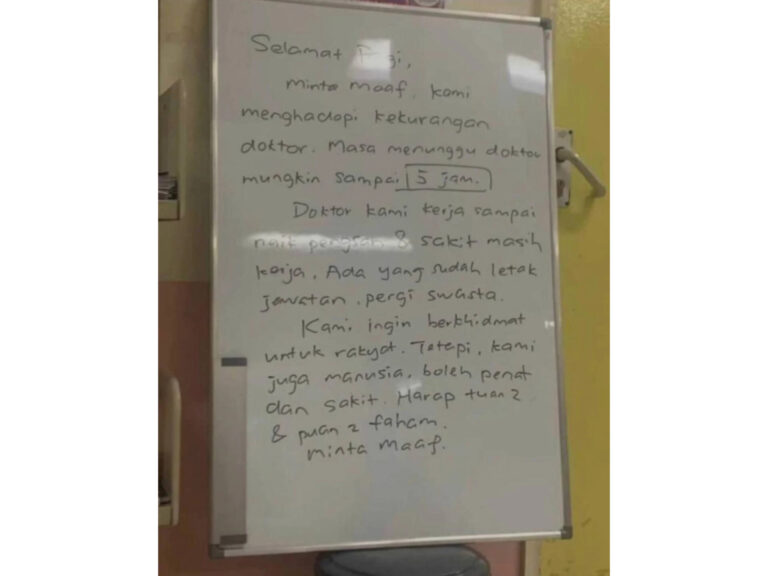 Selamat Pagi,
minta maaf, kami
menghadapi kekurangan
doktor. Masa menunggu doktor
mungkin sampai 5 jam.
Doktor kami kerja sampai
nait pengsan & sakit masih
kerja. Ada yang sudah letak
jawatan, pergi swasta.
Kami ingin berkhidmat
untuk rakyat. Tetapi, kami
juga manusia, boleh penat
dan sakit. Harap tuan2
& puan2 faham.
minta maaf.